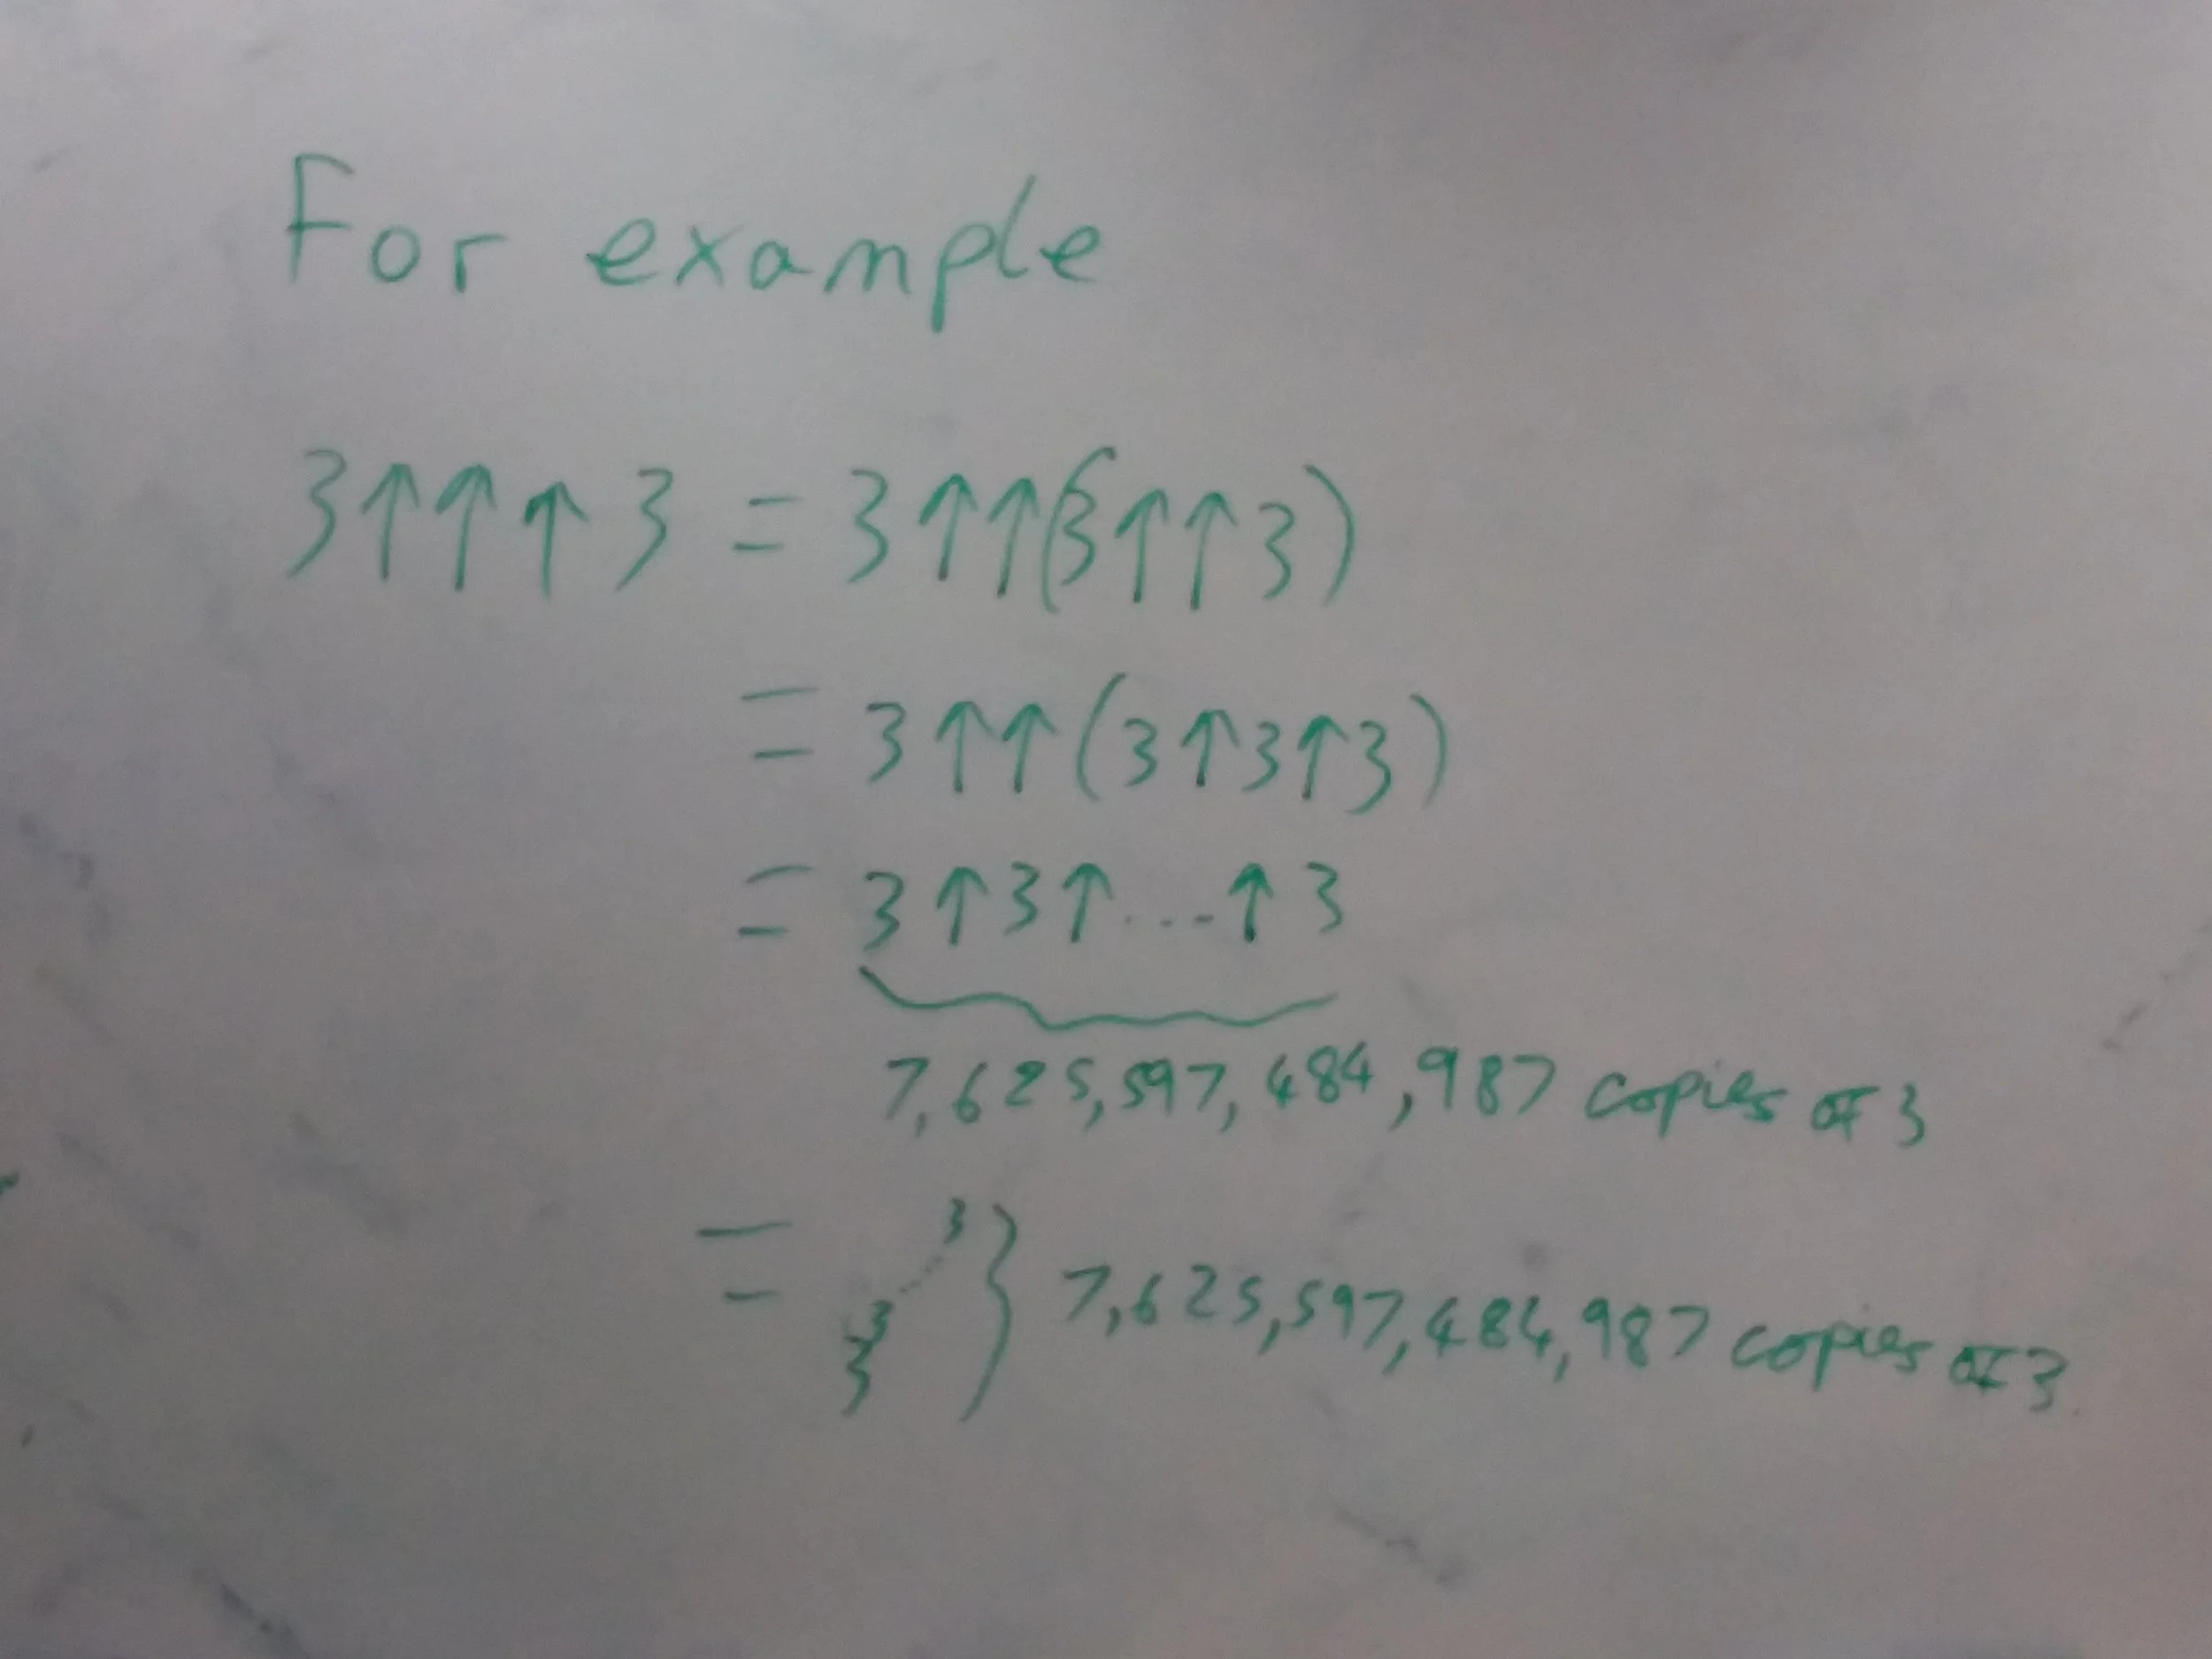 For example
3↑↑↑3 = 3↑↑(3↑↑3)
= 3↑↑(3↑3↑3)
= 3↑3↑...↑3
7,625,597,484,987 copies of 3
= 3^3^⋰^3 } 7,625,597,484,987 copies of 3